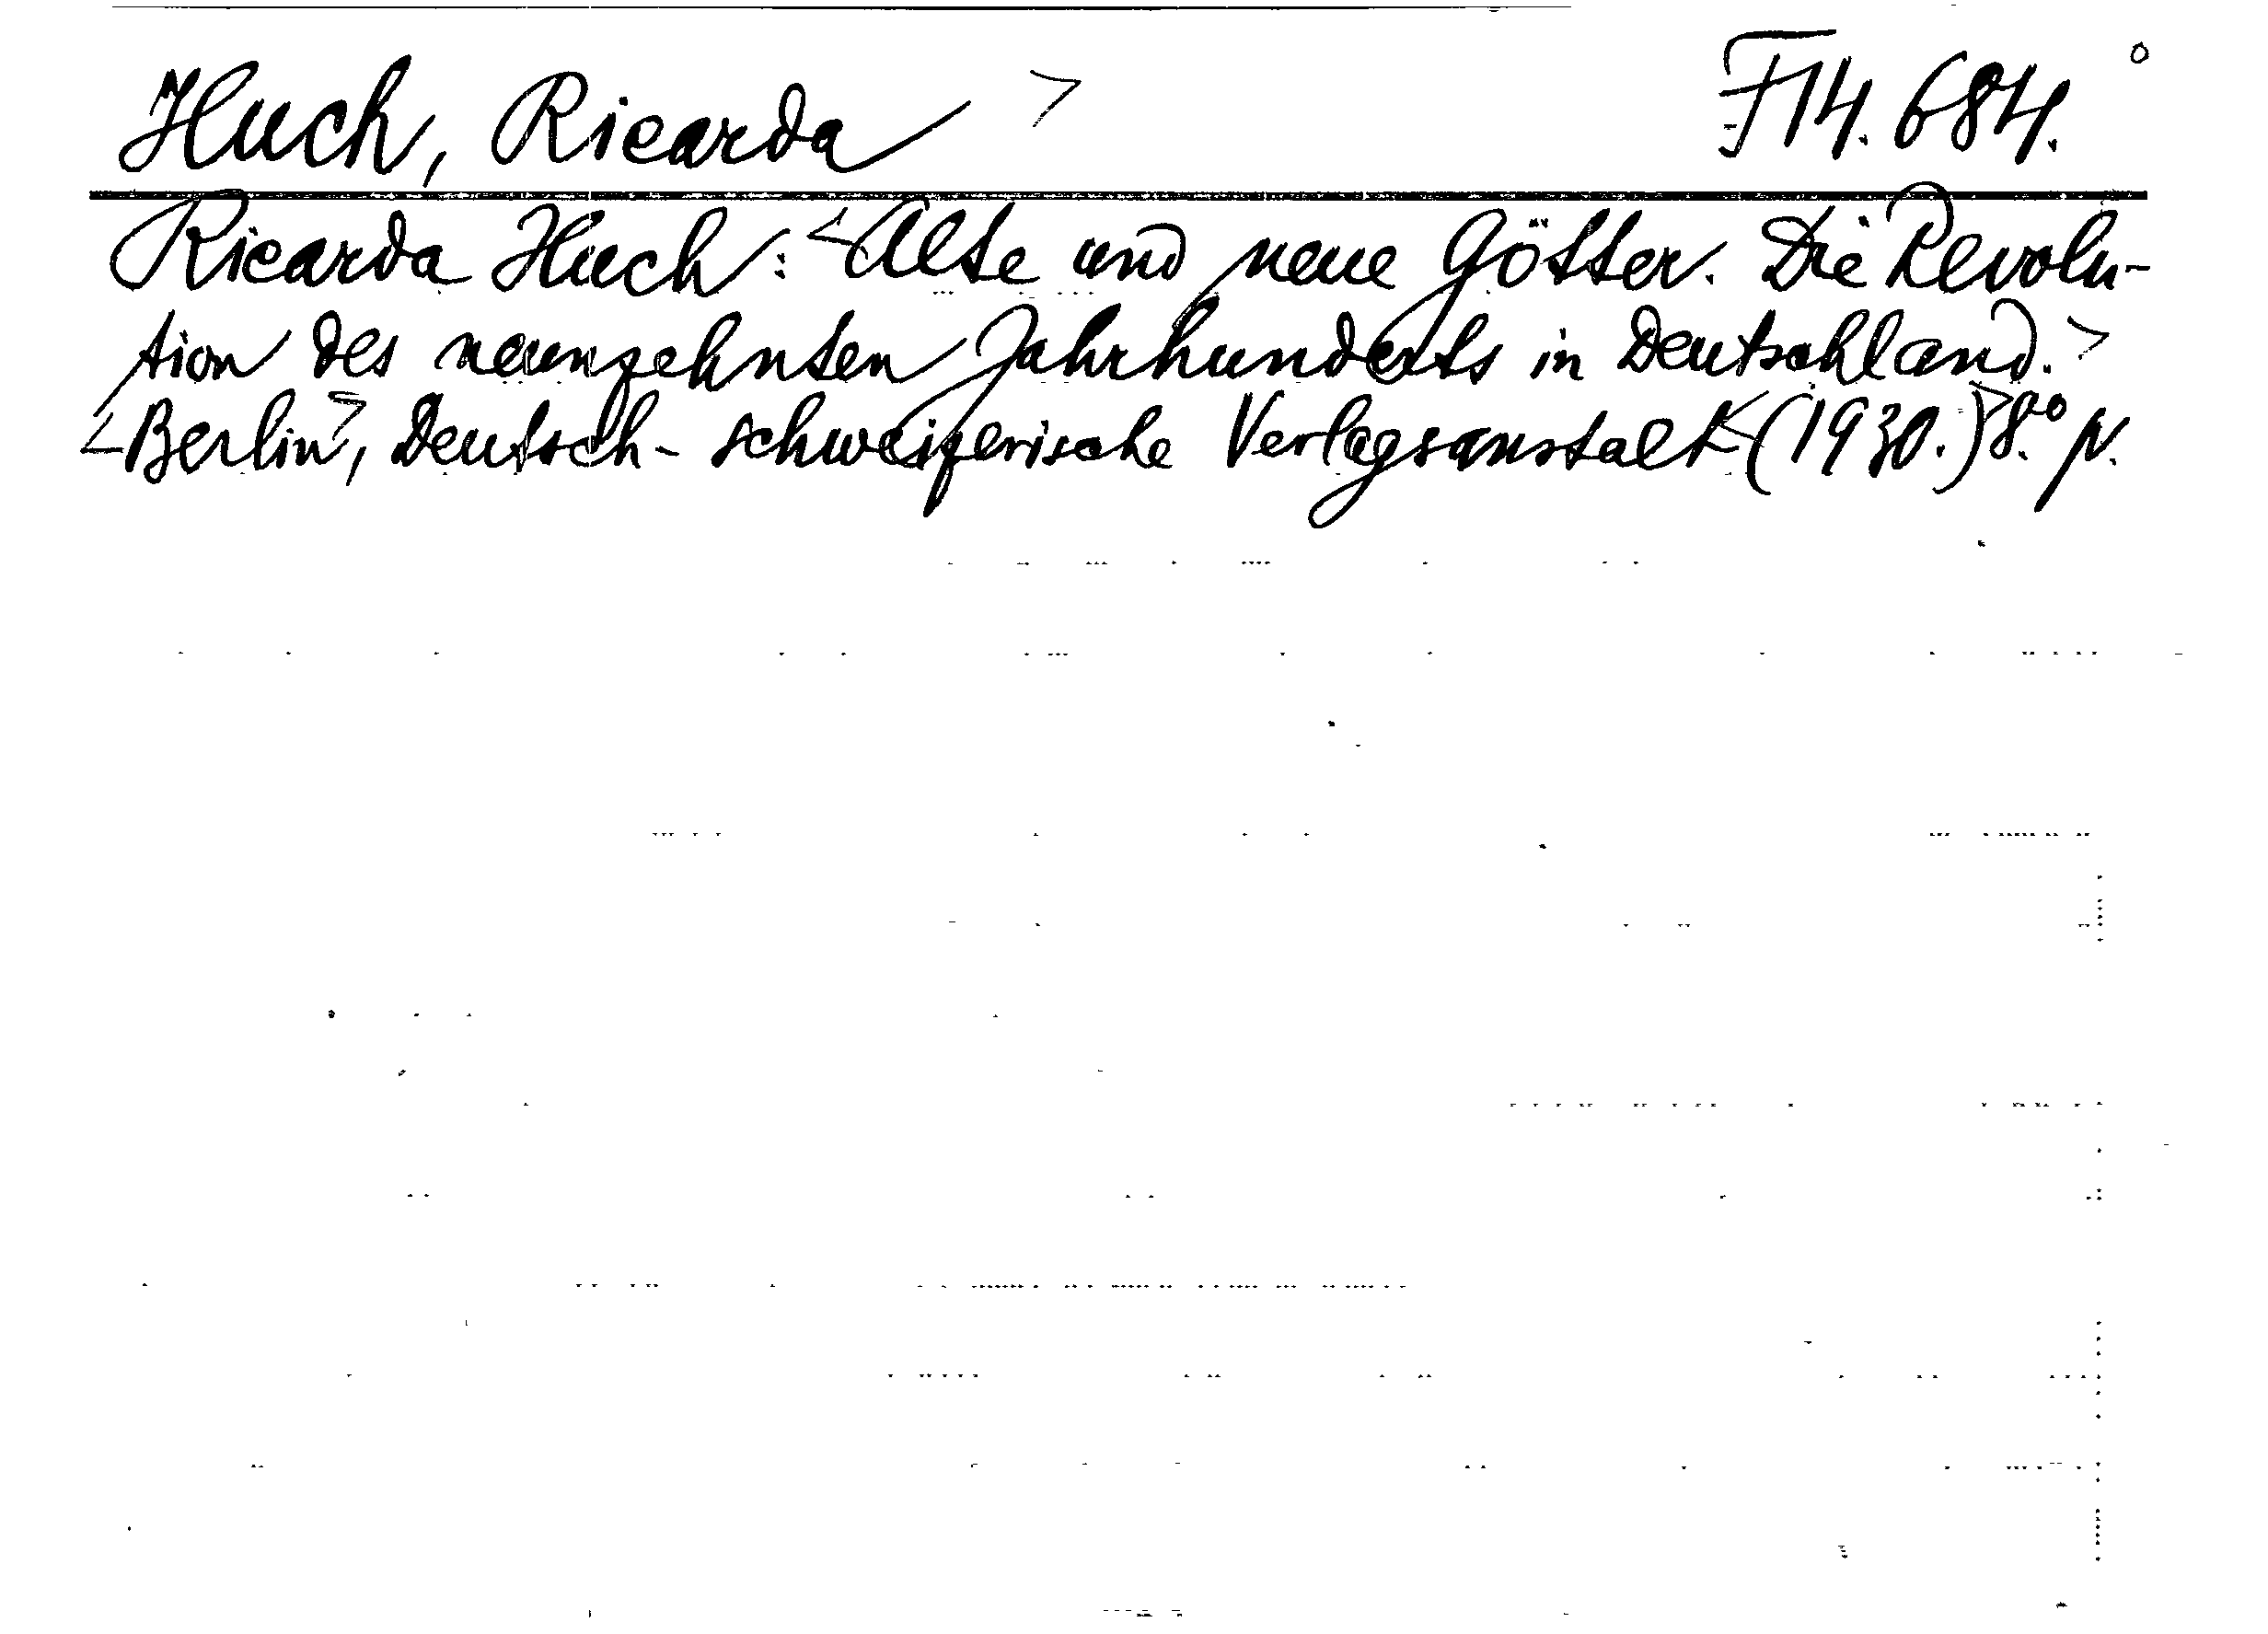 Huch, Ricarda > F14.684. °
Ricarda Huch: <Alte und neue Götter. Die Revolu-
tion des neunzehnten Jahrhunderts in Deutschland.>
<Berlin>, Deutsch-schweizerische Verlagsanstalt <(1930.)> 8.° N.